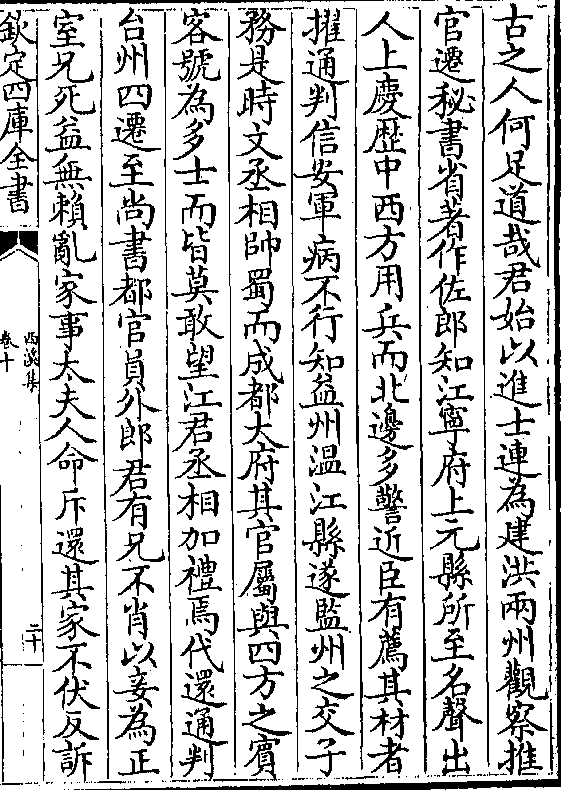 古之人何足道哉君始以進士連為建洪兩州觀察推
官遷秘書省著作佐郎知江寧府上元縣所至名聲出
人上慶歴中西方用兵而北邊多警近臣有薦其材者
擢通判信安軍病不行知益州温江縣遂監州之交子
務是時文丞相帥蜀而成都大府其官屬與四方之賓
客號為多士而皆莫敢望江君丞相加禮焉代還通判
台州四遷至尚書都官員外郎君有兄不肖以妾為正
室兄死益無賴亂家事太夫人命斥還其家不伏反訴
欽定四庫全書
西溪集
卷十
二十